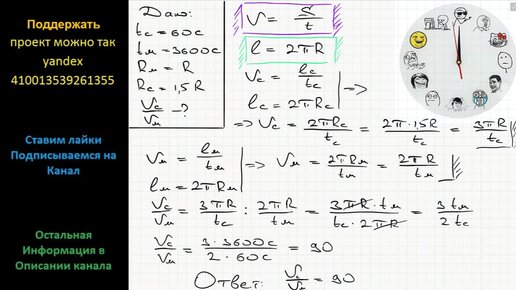 Поддержать
проект можно так
yandex
410013539261355
Ставим лайки
Подписываемся на
Канал
Остальная
Информация в
Описании канала
Дано:
tc = 60с
tм = 3600с
Rм = R
Rc = 1,5R
Vc/Vм - ?
V = S/t
l = 2πR
Vc = lc/tc
lc = 2πRc
|=>
=> Vc = 2πRc/tc = 2π·1,5R/tc = 3πR/tc
Vм = lм/tм
lм = 2πRм
|=> Vм = 2πRм/tм = 2πR/tм
Vc/Vм = 3πR/tc : 2πR/tм = 3πR·tм/tc·2πR = 3tм/2tc
Vc/Vм = 3·3600с/2·60с = 90
Ответ: Vc/Vм = 90